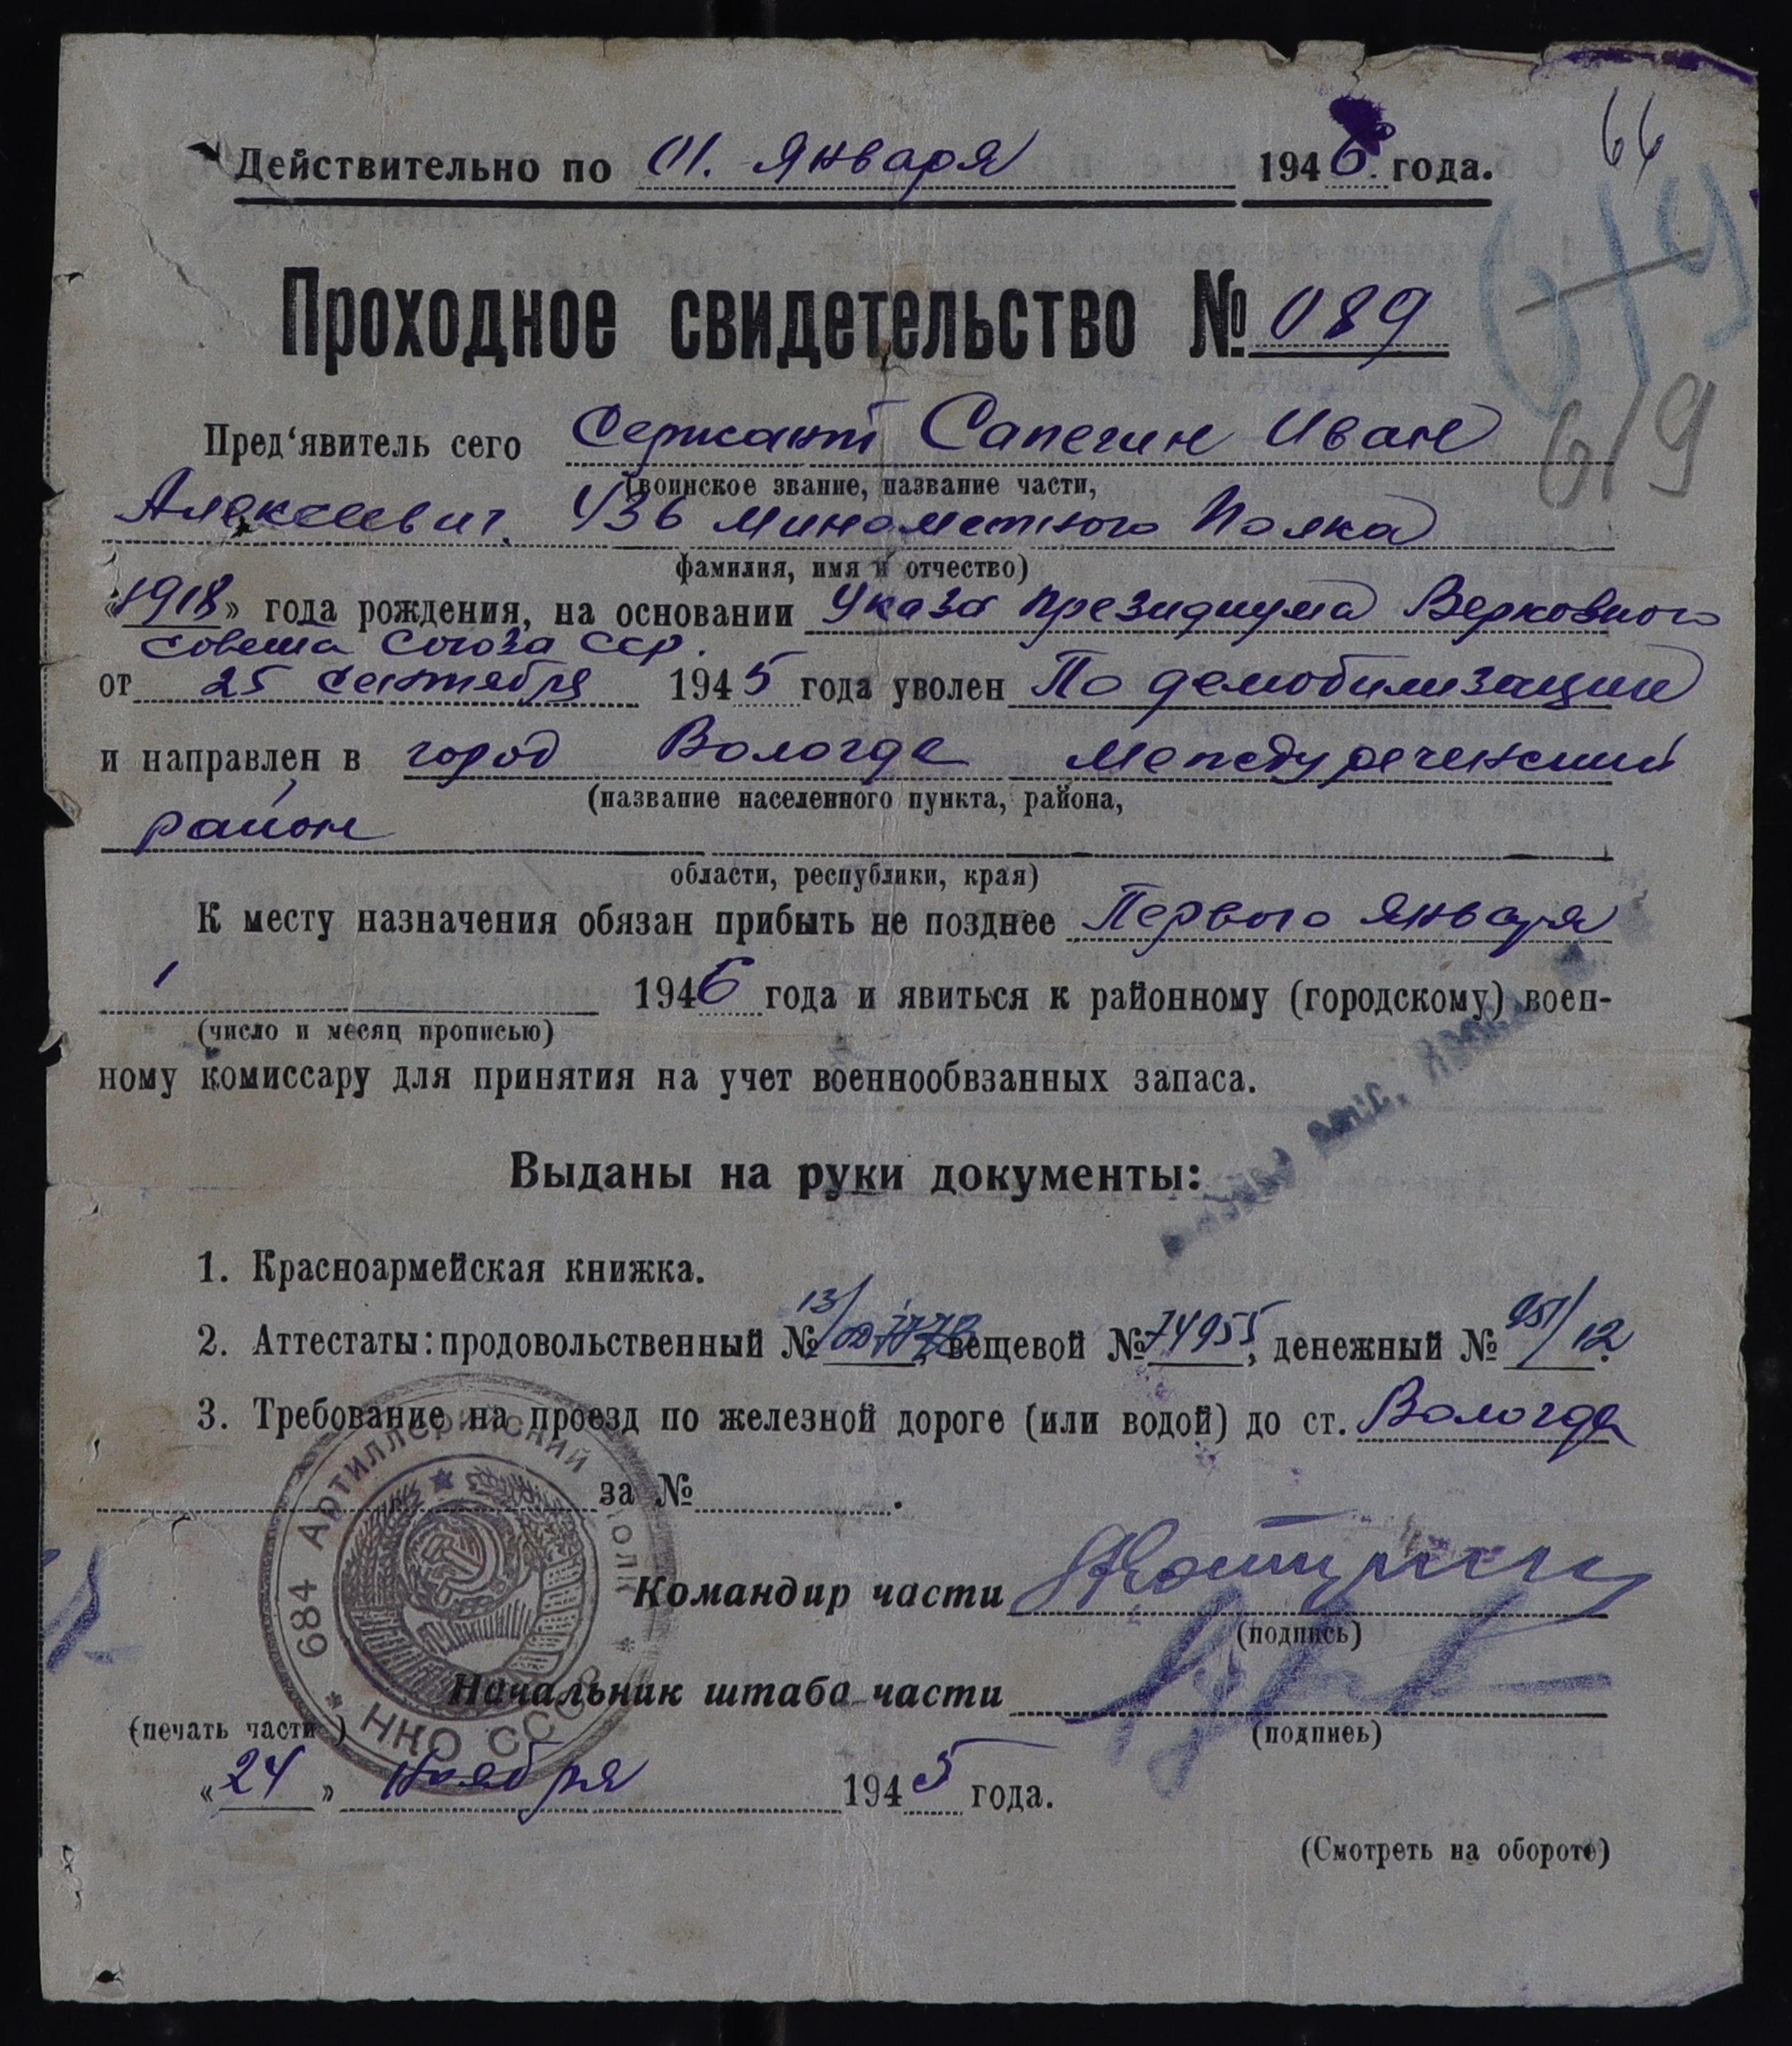 66
Действительно по 01. Января 1946. года.
Проходное свидетельство № 089
619
Пред‘явитель сего Сержант Сапегин Иван
(воинское звание, название части,
Алексеевич. 436 Минометного Полка
фамилия, имя и отчество)
«1918» года рождения, на основании Указа Президиума Верховного
Совета Союза ССР.
от 25 сентября 1945 года уволен По демобилизации
и направлен в город Вологда Междуреченский
(название населенного пункта, района,
район
области, республики, края)
К месту назначения обязан прибыть не позднее Первого Января
1946 года и явиться к районному (городскому) воен-
(число и месяц прописью)
ному комиссару для принятия на учет военнообвзанных запаса.
Выданы на руки документы:
1. Красноармейская книжка.
2. Аттестаты: продовольственный № 13/ вещевой № 74955, денежный № 951/12.
3. Требование на проезд по железной дороге (или водой) до ст. Вологда
за № .
684 АРТИЛЛЕРИЙСКИЙ ПОЛК * НКО СССР *
Командир части
(подпись)
Начальник штаба части
(печать части)
(подпись)
«24» Ноября 1945 года.
(Смотреть на обороте)